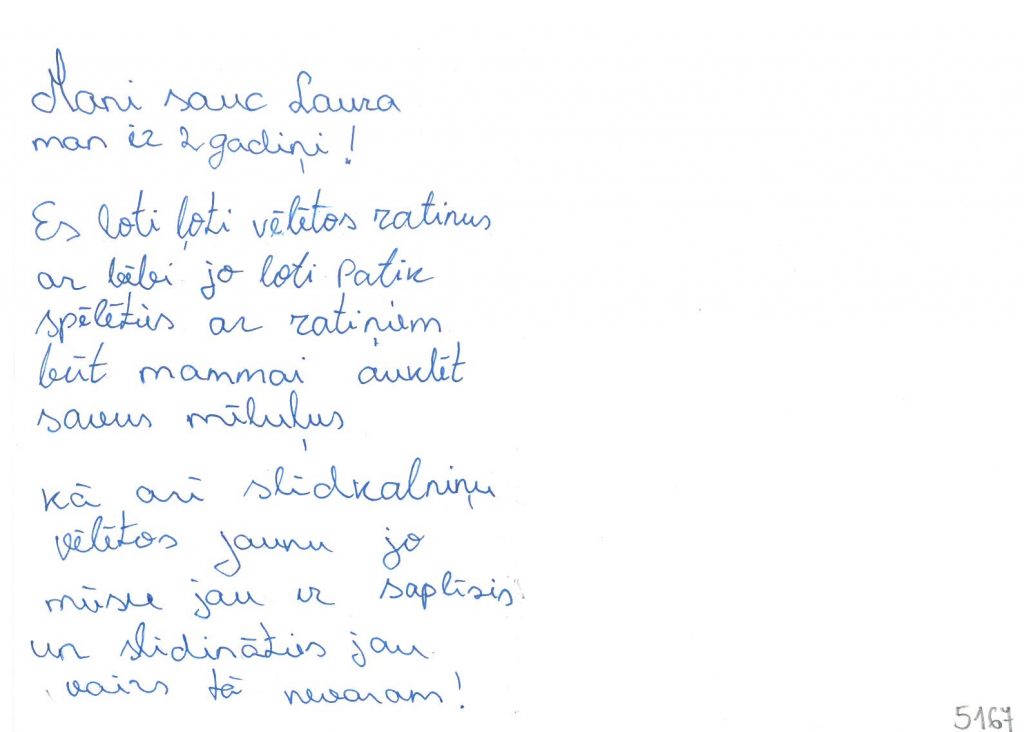 Mani sauc Laura
man ir 2 gadiņi!
Es loti ļoti vēlētos ratinus
ar bēbi jo loti Patik
spēlēties ar ratiņiem
būt mammai auklēt
savus mīluļus
kā arī slīdkalniņu
vēlētos jaunu jo
mūsu jau ir saplīsis
un slidināties jau
vairs tā nevaram!
5167